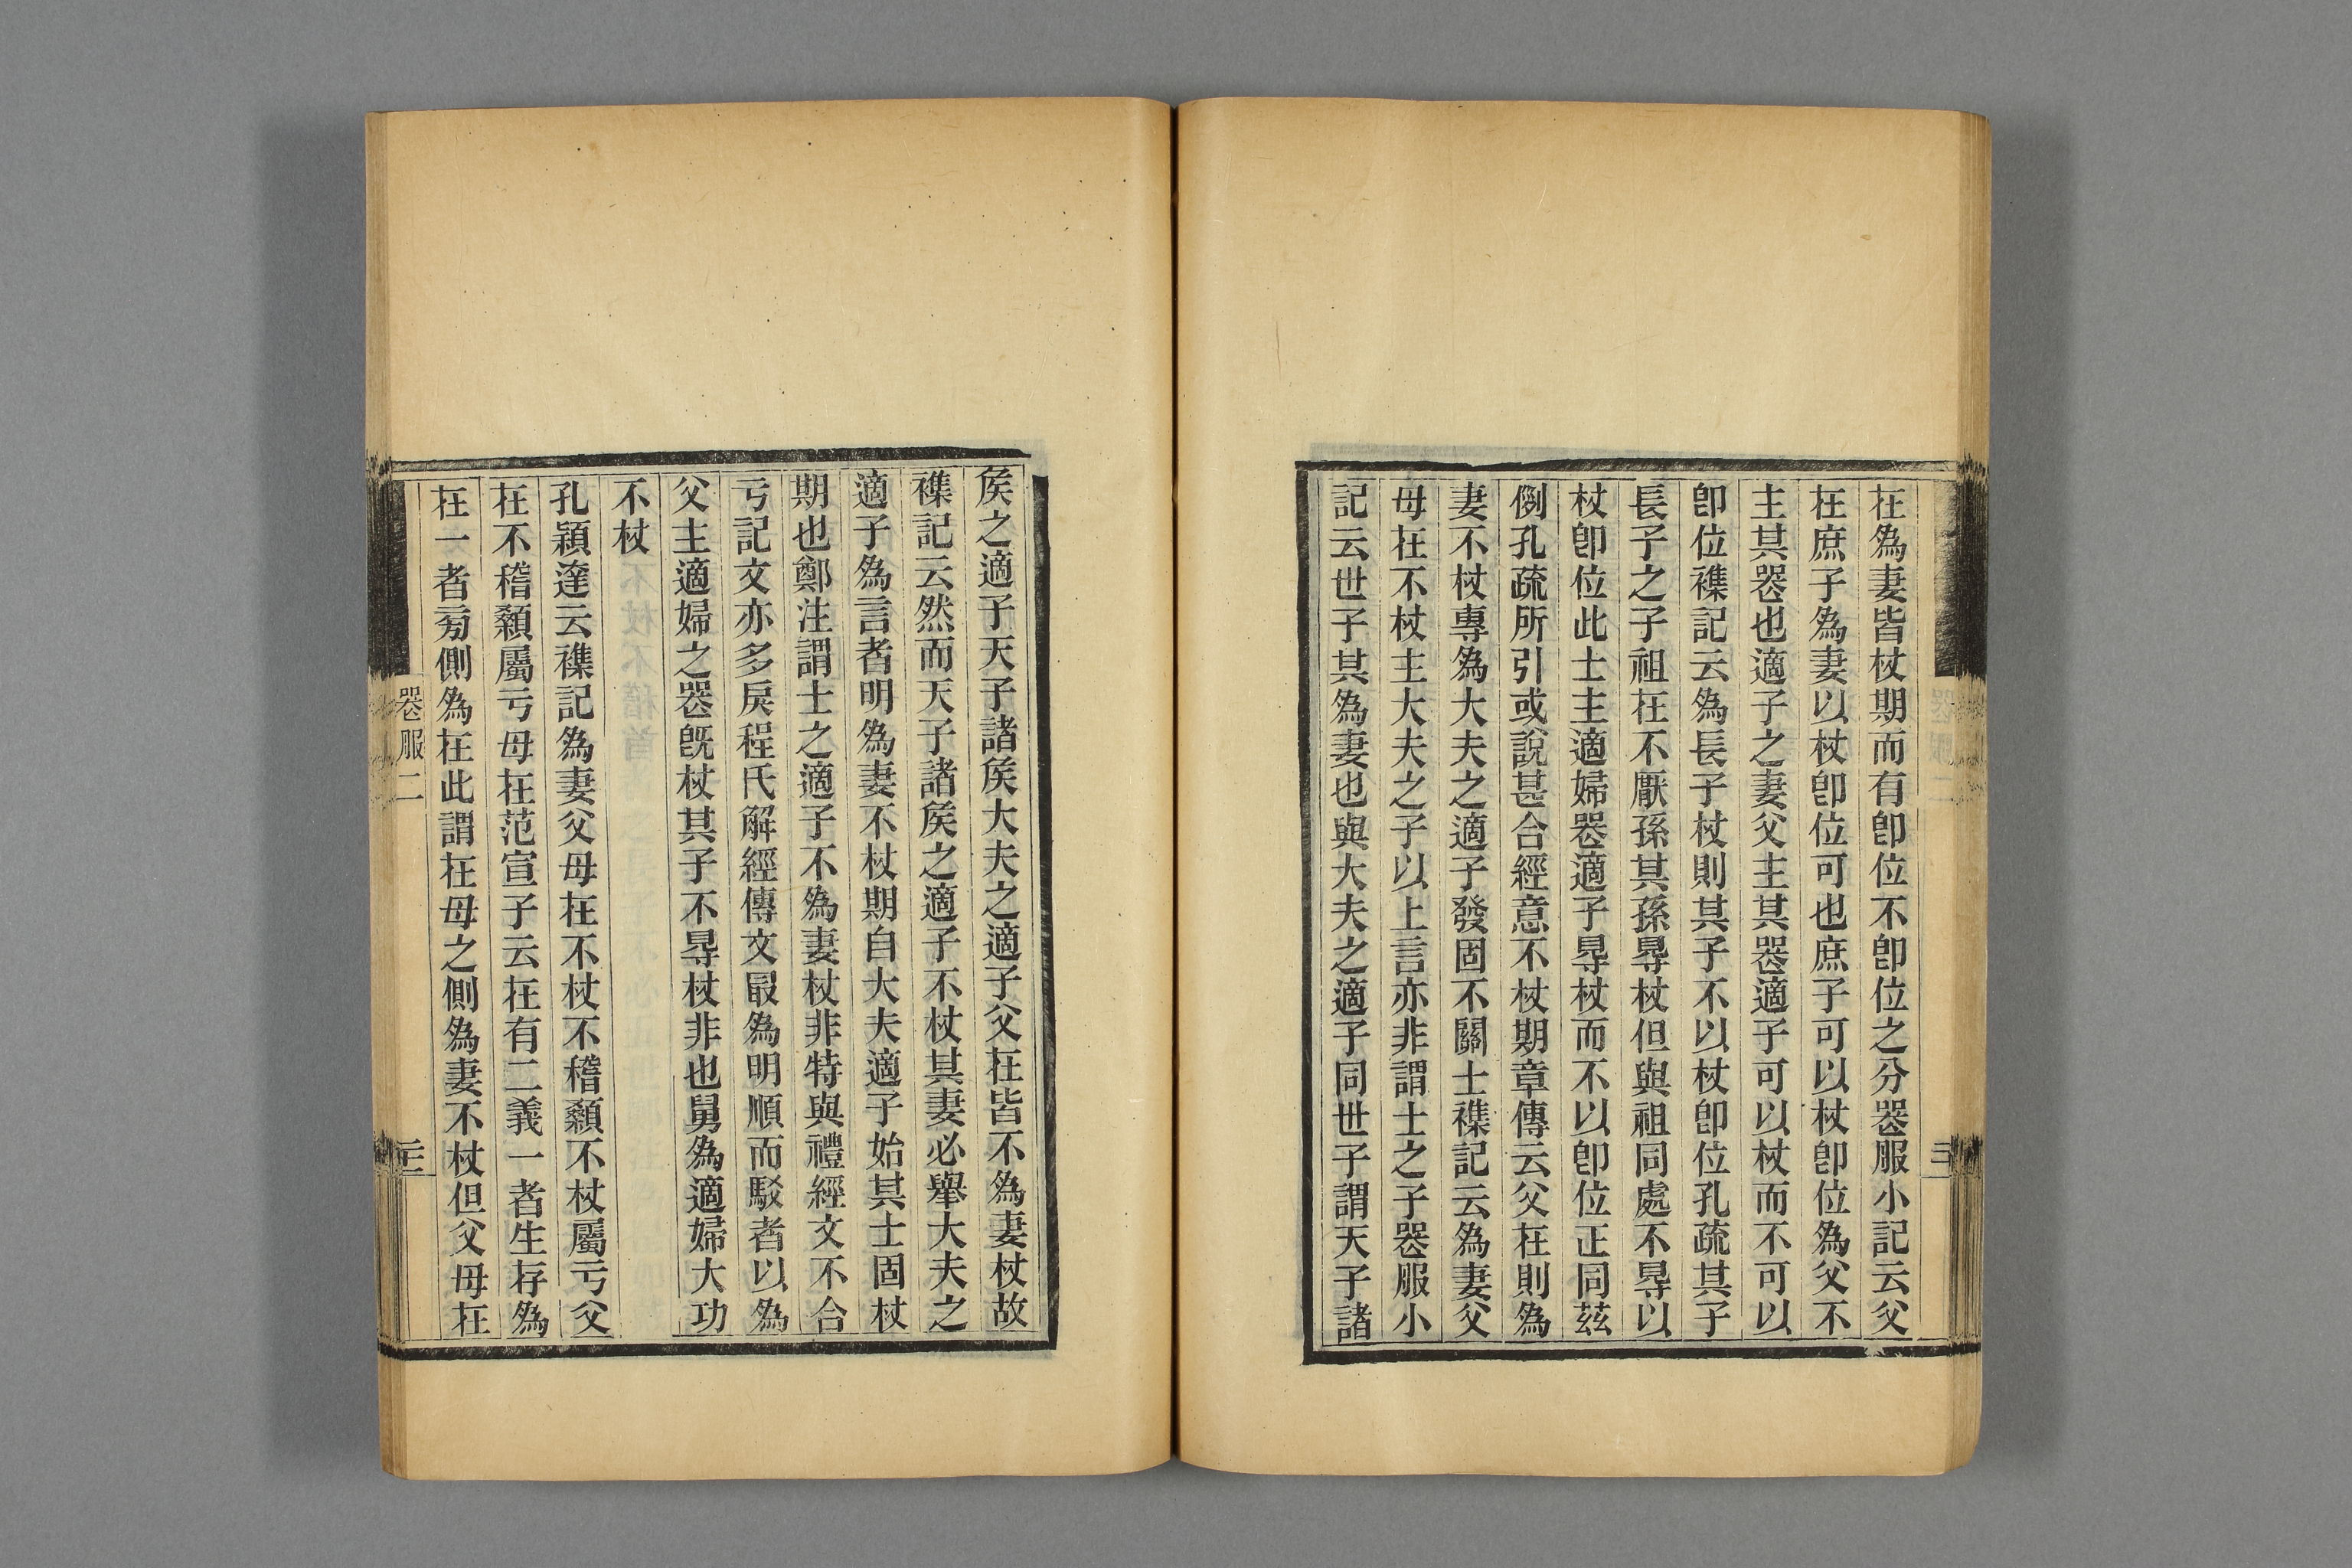 在爲妻皆杖期而有卽位不卽位之分喪服小記云父
在庶子爲妻以杖卽位可也庶子可以杖卽位爲父不
主其喪也適子之妻父主其喪適子可以杖而不可以
卽位襍記云爲長子杖則其子不以杖卽位孔疏其子
長子之子祖在不厭孫其孫㝵杖但與祖同處不㝵以
杖卽位此士主適婦喪適子㝵杖而不以卽位正同茲
例孔疏所引或說甚合經意不杖期章傳云父在則爲
妻不杖專爲大夫之適子發固不關士襍記云爲妻父
母在不杖主大夫之子以上言亦非謂士之子喪服小
記云世子其爲妻也與大夫之適子同世子謂天子諸
矦之適子天子諸矦大夫之適子父在皆不爲妻杖故
襍記云然而天子諸矦之適子不杖其妻必舉大夫之
適子爲言者明爲妻不杖期自大夫適子始其士固杖
期也鄭注謂士之適子不爲妻杖非特與禮經文不合
亏記文亦多戾程氏解經傳文最爲明順而駁者以爲
父主適婦之喪旣杖其子不㝵杖非也舅爲適婦大功
不杖
孔穎達云襍記爲妻父母在不杖不稽顙不杖屬亏父
在不稽顙屬亏母在范宣子云在有二義一者生存爲
在一者旁側爲在此謂在母之側爲妻不杖但父母在
喪服二